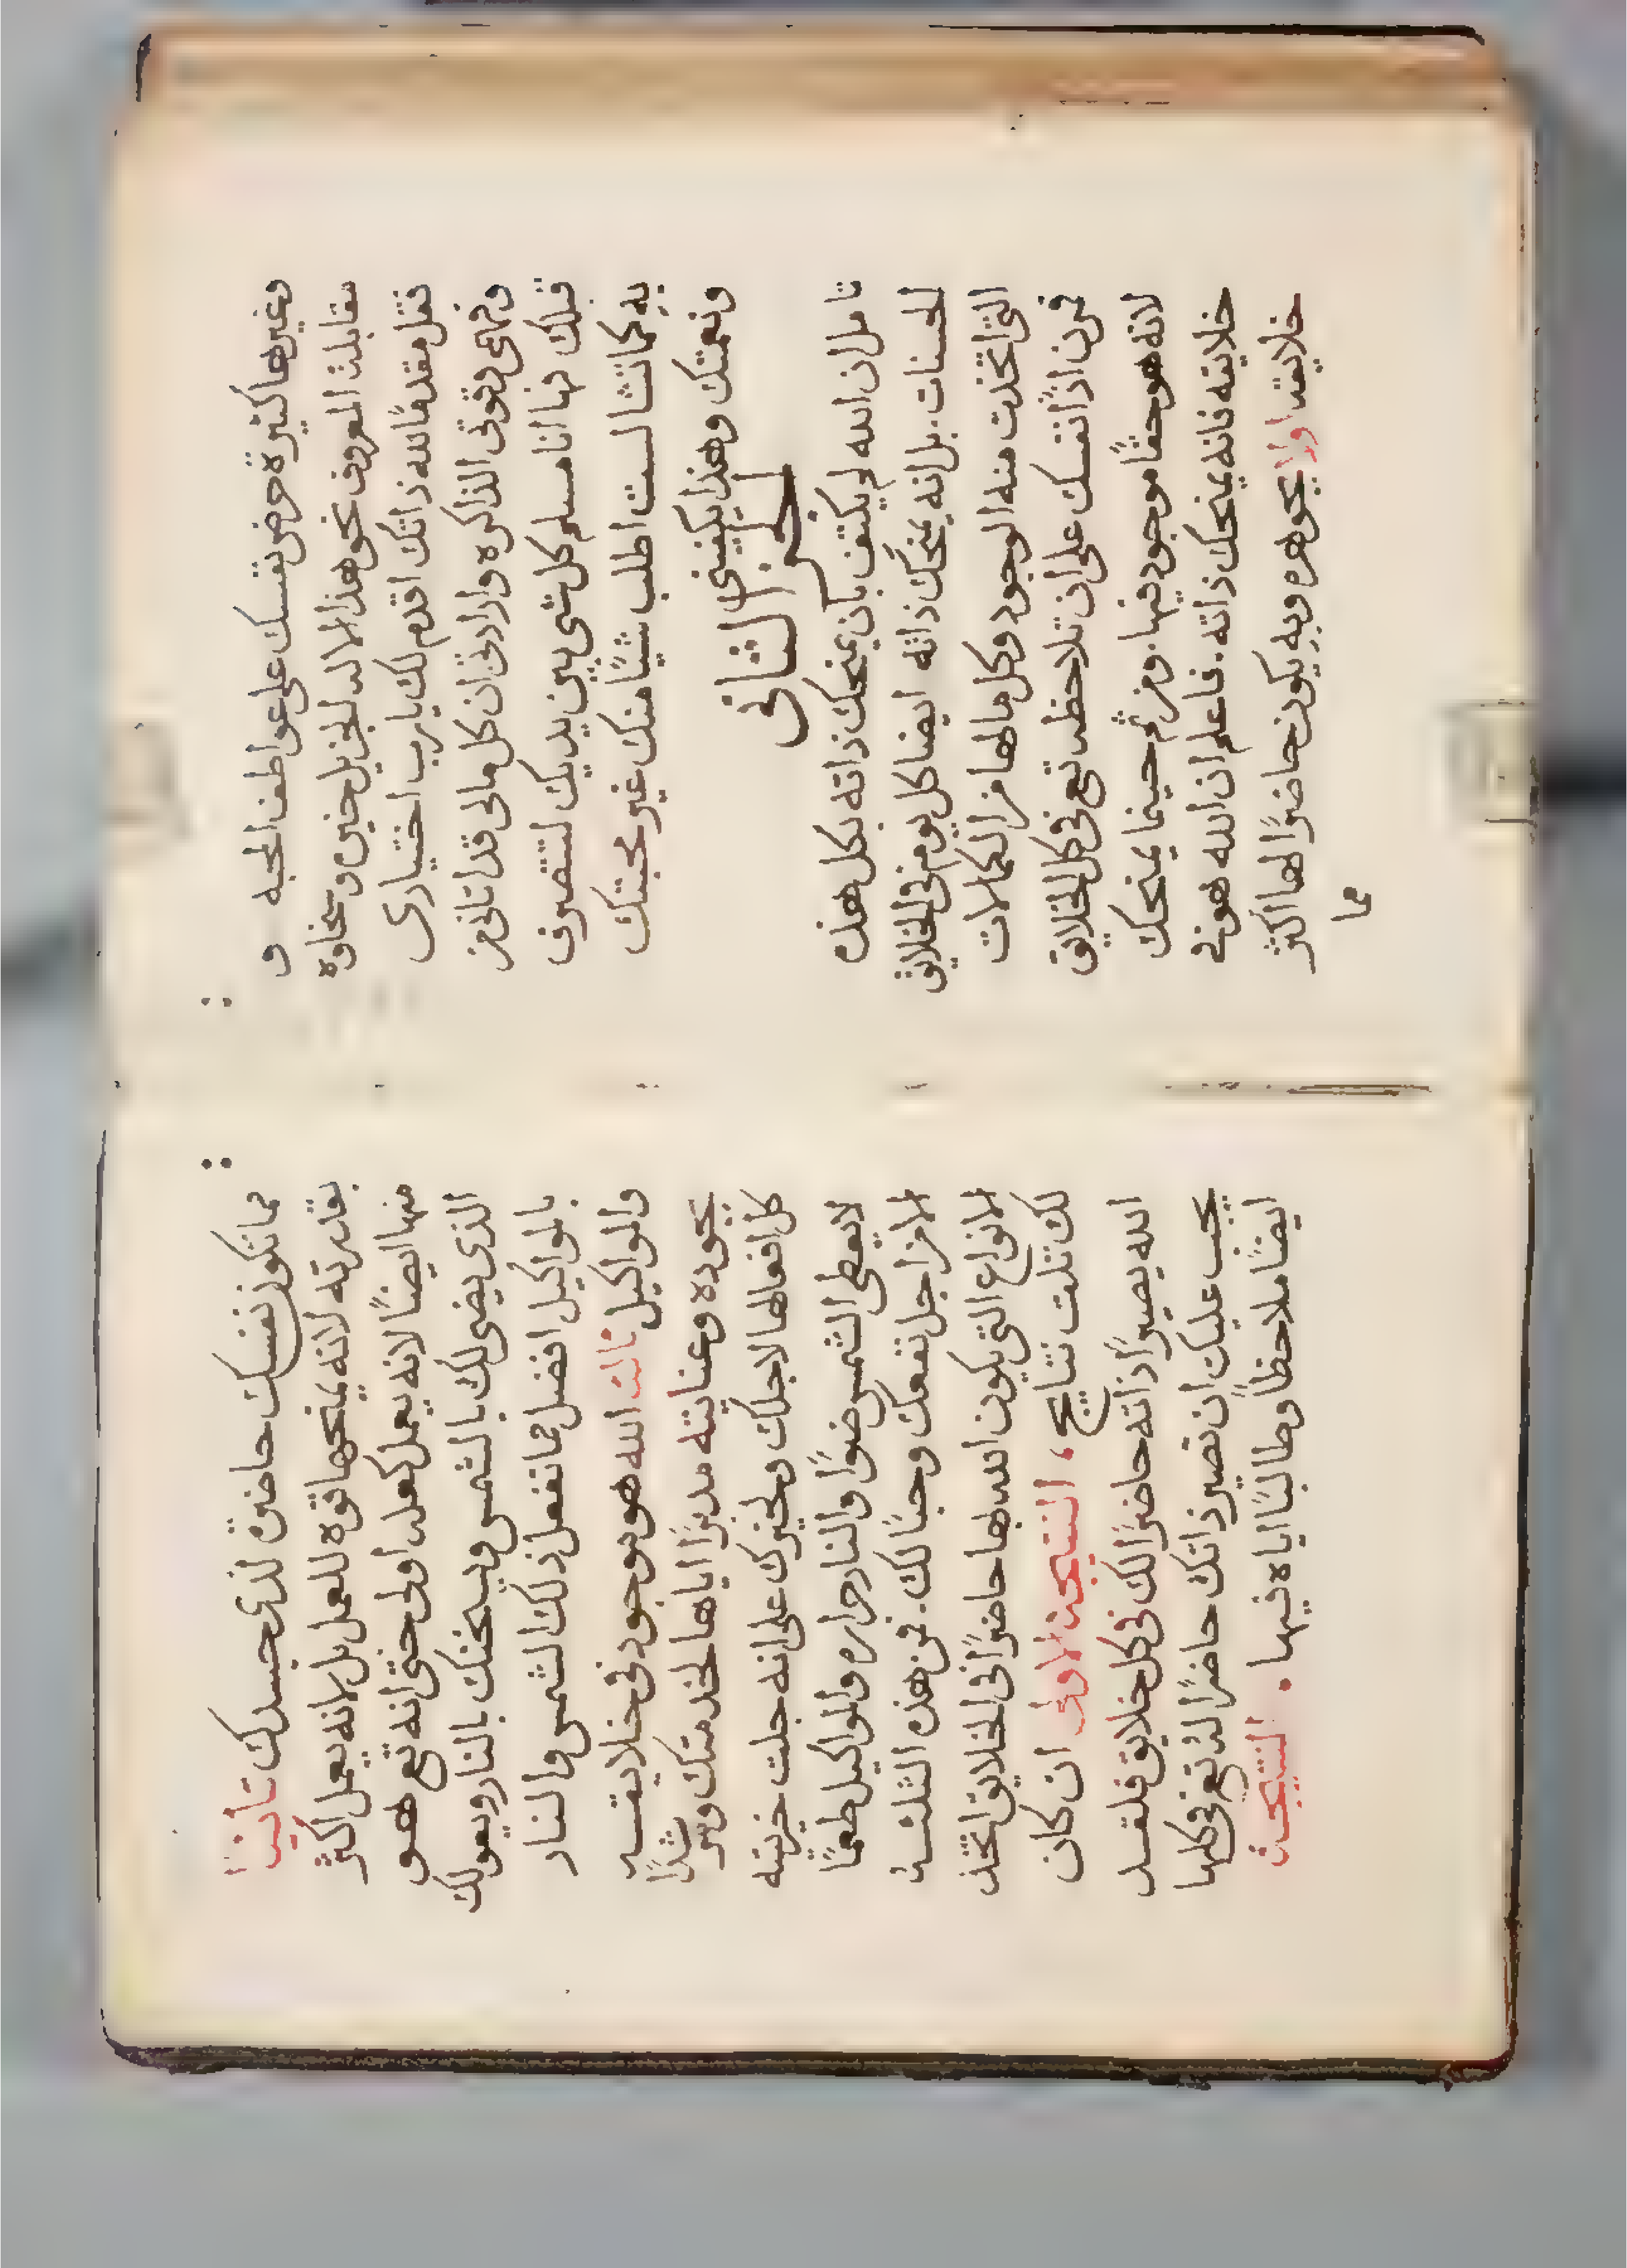 وغيرها كثيرة حرض نفسك على عواطف المحبه و
مقابلة المعروف نحو هذا الاله الجزيل خيره وسخاوه
فقل مقدمًا لله ذاتك اقدم لك يارب اختيارى
وفهمى وقوتى الذاكره وارادتى ان كل مالى قد اتانى من
قبلك فها انا مسلم كل شى بين يديك لتتصرف
به كما تشا لست اطلب شيًا منك غير محبتك
ونعمتك وهذا يكفينى
الجز الثانى
تامل ان الله لم يكتف بان يمنحك ذاته بكل هذه
الحسنات. بل انه يمنحك ذاته ايضا كل يوم فى الخلايق
التى اتخذت منه الوجود وكل مالها من الكمالات
فمرن اذًا نفسك على ان تلاحظه تع فى كل الخلايق
لانه هو حقًا موجود فيها. ومن ثم حينما يمنحك
خلايقه فانه يمنحك ذاته. فاعلم ان الله هو فى
خلايقه اولا بجوهره وبه يكون حاضرًا لها اكثر
مما
مما تكون نفسك حاضرة لذى جسدك ثانيًا
بقدرته لانه يمنحها قوه للعمل بل لانه يعمل اكثر
منها ايضًا لانه يعمل كعله اولى حتى انه تع هو
الذى يضى لك بالشمس ويسخنك بالنار ويعولك
بالمواكيل افضل مما تفعل ذلك الشمس والنار
والمواكيل ثالث الله هو موجود فى خلايقه
بجوده وعنايته مدبرًا اياها لخدمتك ومرشدًا
كل افعالها لاجلك ولخيرك على انه جلت حريته
لا يعطى الشمس ضوًا والنار حراره والمواكيل طعمًا
الا من اجل نفعك وحبًا لك. فمن هذه الثلثه
الانواع التى يكون الله بها حاضرًا فى الخلايق اتخذ
لك ثلث نتايج، النتيجة الاولى ان كان
الله يصير اذًا ذاته حاضرًا لك فى كل خلايق فلقد
يجب عليك ان تصير ذاتك حاضرًا لله تع فى كلها
ايضًا ملاحظًا وطالبًا اياه فيها. النتيجة